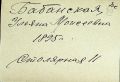 Бабанская
Ульяна Моисеевна
1895 г.
Столярная 11